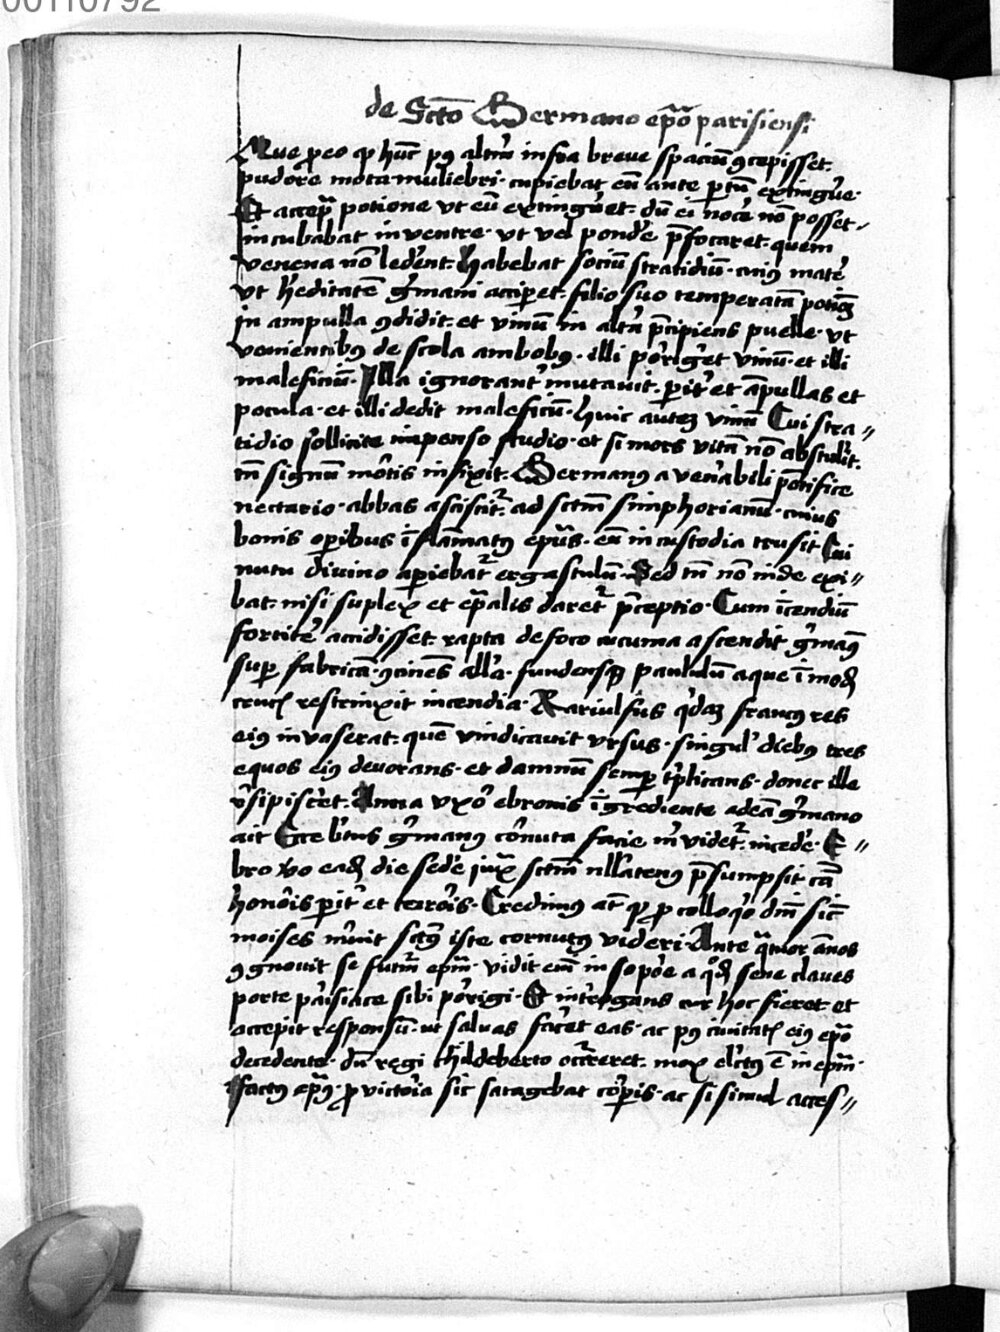 00110792
de Scto Germano epo parisiensi
Que p eo q hūc p9 altm infra breve spaciū 9cepisset.
pudore mota muliebri. cupiebat eū ante ptū extingu̅e.
Et accepta potione ut eū extingueret. dū ei noce̅ nō posset
incubabat in ventre. ut vel ponde̅ p̅focaret. quem
venena nō lede̅nt. Habebat sociū stratidiū. cui9 mate̅
ut he̅ditatē ge̅mani accip̅et. filio suo temperatā potionē
in ampulla 9didit. et vinū in alta̅ p̅cipiens puelle. ut
venientib9 de scola ambob9. illi porige̅t vinū. et illi
maleficiū. Illa ignorant̅ mutavit. pit̅ et āpullas et
pocula. et illi dedit maleficiū. huic autem vinū Cui stra=
tidio sollicite impenso studio. et si mors vitā nō abstulit.
tn̄ signū mo̅tis infixit. Germanus a ven̅abili pōtifice
nectario. abbas asciscit̅. ad sctm̄ simphorianū. cuius
bonis op̅ibus īflāmat9 ep̅us. eū in custodia trusit Cui
nutu divino apiebat̅ ergastulū. Sed tn̄ nō inde exi=
bat. nisi suplex et ep̅alis daret̅ p̅ceptio. Cum īcendiū
fortite̅ accidisset. rapta de foco cucuma ascendit ge̅man9
sup̅ fabricā. 9cinēs alla. fundensq paululū aque ī modū
crucis restrinxit incendia. Rariulfus q̅dam franc9 res
ei9 invaserat. quē vindicavit ursus. singul̅ dieb9 tres
equos ei9 devorans. et damnū semp̅ t̅plicans. donec ille
r̅sipisce̅t. Anna uxor̅ ebronis īgrediente ad eā ge̅mano
ait Ecce b̅tus ge̅man9 co̅nuta facie m̅ videt̅. incede̅. E=
bro v̅o eadem die sede̅ juxta sctm̄ nllaten9 p̅sumpsit cā
hono̅is pit̅ et terro̅is. Credim9 at̄ q p colloq̅o dn̄i sic̄
moises m̅uit sct9 iste cornut9 videri. Ante q̅tuor ānos
9gnouit se futu̅m epm̄. vidit eni̅ in sopo̅e a q̅dā sene claves
porte pa̅isiace sibi po̅rigi. Et int̅rogans cur hoc fieret. et
accepit responsū. ut saluas face̅t eas. ac p9 civitatis ei9 ep̅o
decedente. dū regi childeberto occ̅reret. mox elct9 ē in epm̄.
factus ep̅us. p victoria sic satagebat co̅pis. ac si simul acces=